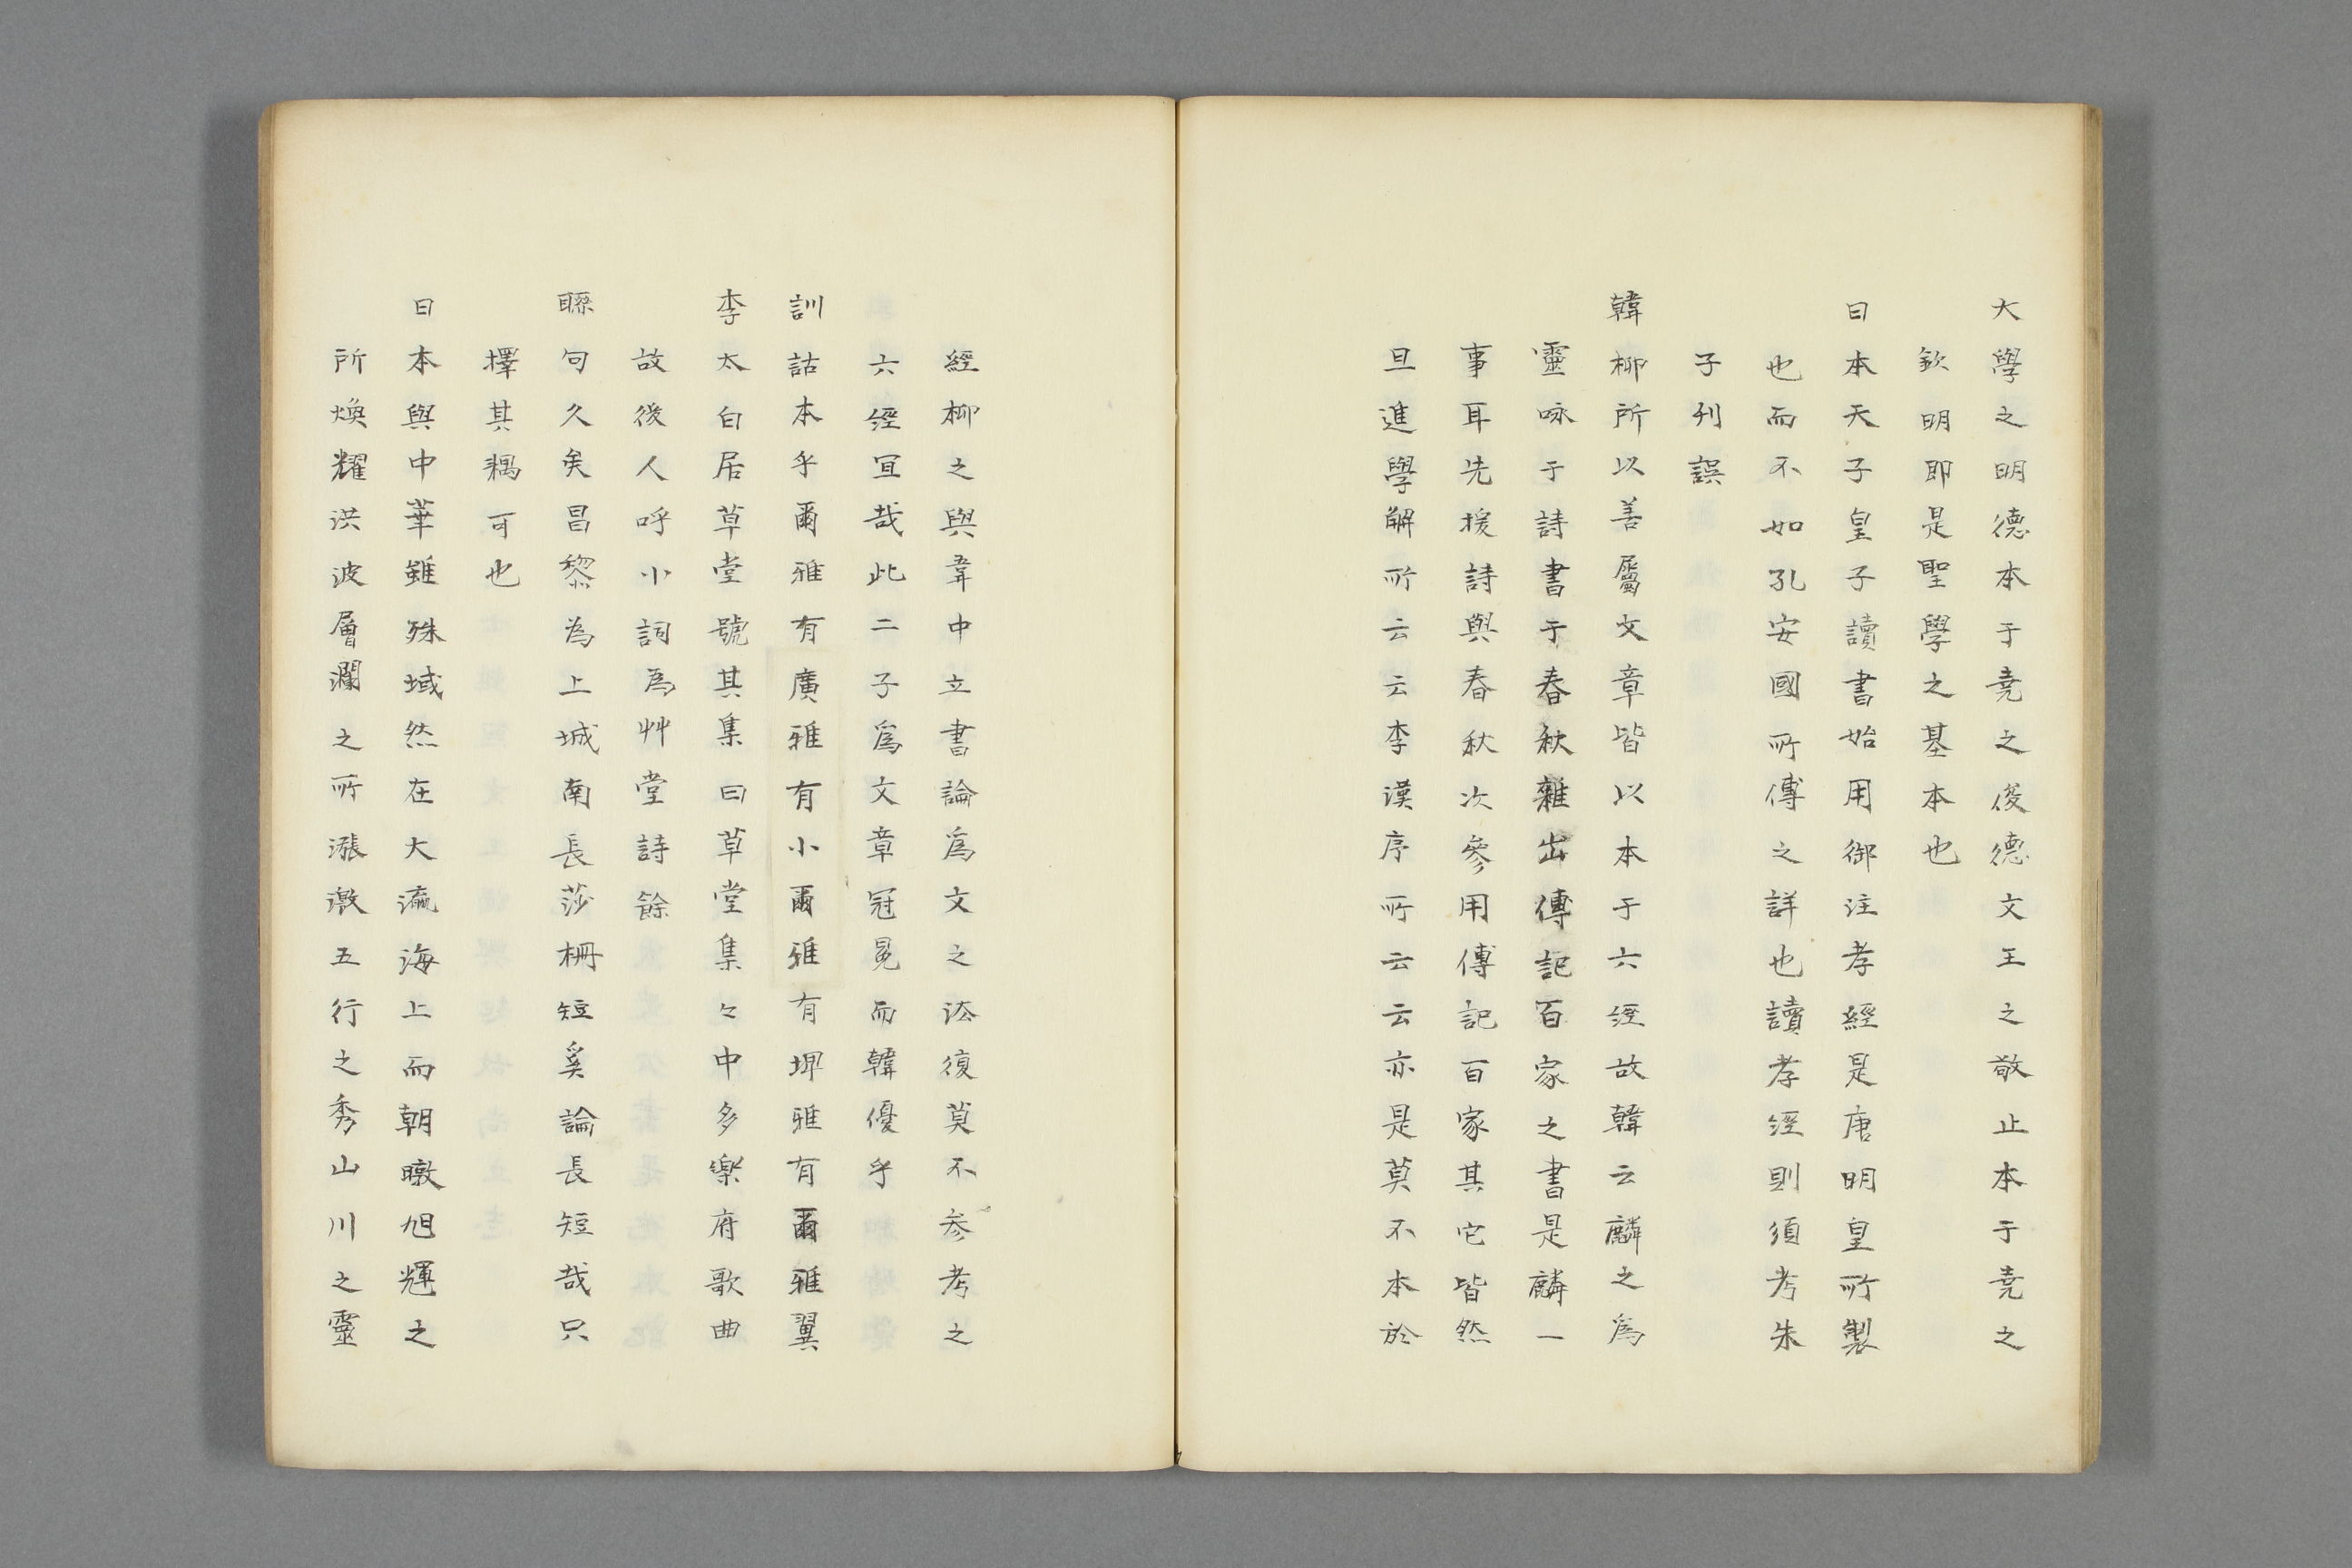 大學之明德本于堯之俊德文王之敬止本于堯之
欽明即是聖學之基本也
日本天子皇子讀書始用御注孝經是唐明皇所製
也而不如孔安國所傳之詳也讀孝經則須考朱
子刋誤
韓柳所以善屬文章皆以本于六經故韓云麟之爲
靈咏于詩書于春秋雜出傳記百家之書是麟一
事耳先援詩與春秋次參用傳記百家其它皆然
且進學解所云云李漢序所云云亦是莫不本於
經柳之與韋中立書論爲文之法復莫不參考之
六經冝哉此二子爲文章冠冕而韓優乎
訓詁本乎爾雅有廣雅有小爾雅有埤雅有爾雅翼
李太白居草堂號其集曰草堂集々中多樂府歌曲
故後人呼小詞爲艸堂詩餘
聯句久矣昌黎為上城南長莎柵短奚論長短哉只
擇其耦可也
日本與中華雖殊域然在大瀛海上而朝暾旭輝之
所煥耀洪波層瀾之所漲激五行之秀山川之靈